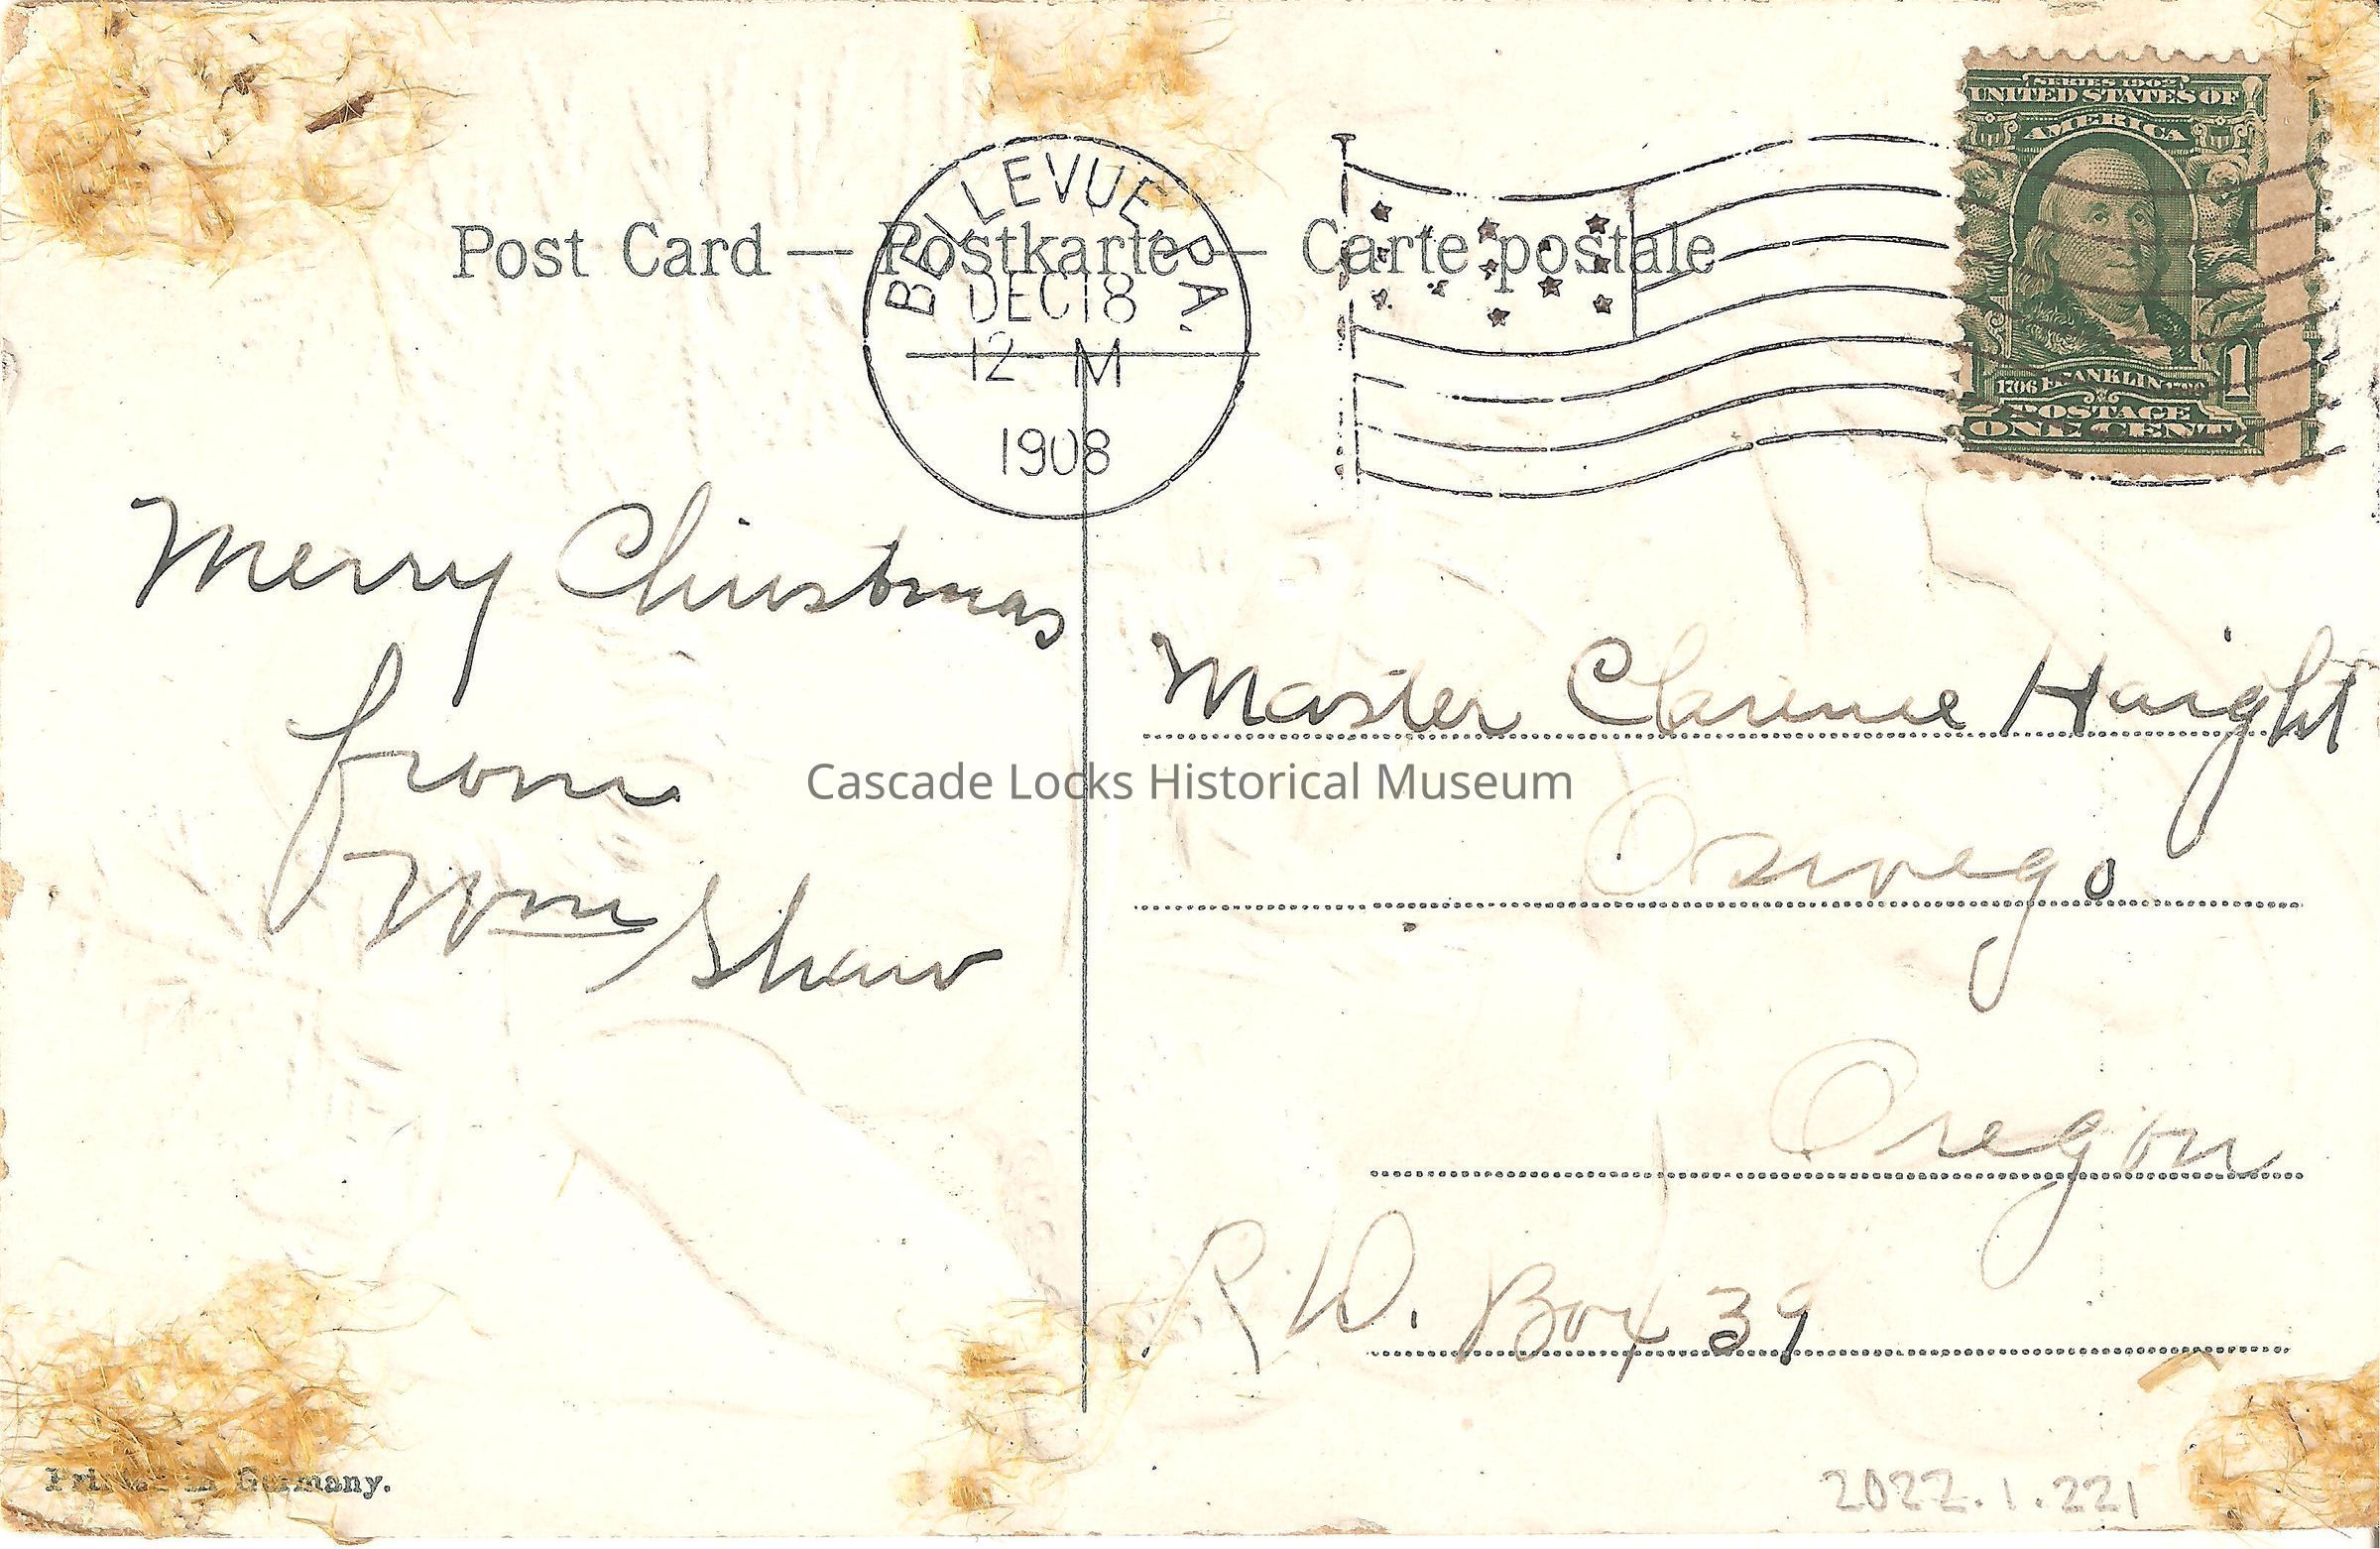 SERIES 1902
UNITED STATES OF
AMERICA
1706 FRANKLIN 1790
1 1
POSTAGE
ONE CENT
BELLEVUE PA.
DEC 18
12 - M
1908
Post Card — Postkarte — Carte postale
Merry Christmas
from
Wm Shaw
Master Clarence Haight
Oswego
Oregon
R D. Box 39
Cascade Locks Historical Museum
Printed in Germany.
2022.1.221